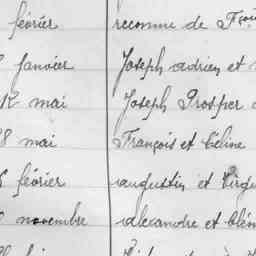 février reconnue de Fçois
Janvier Joseph adrien et
12 mai Joseph Prosper
28 mai François et Céline
février augustin et Virg
novembre alexandre et Clém